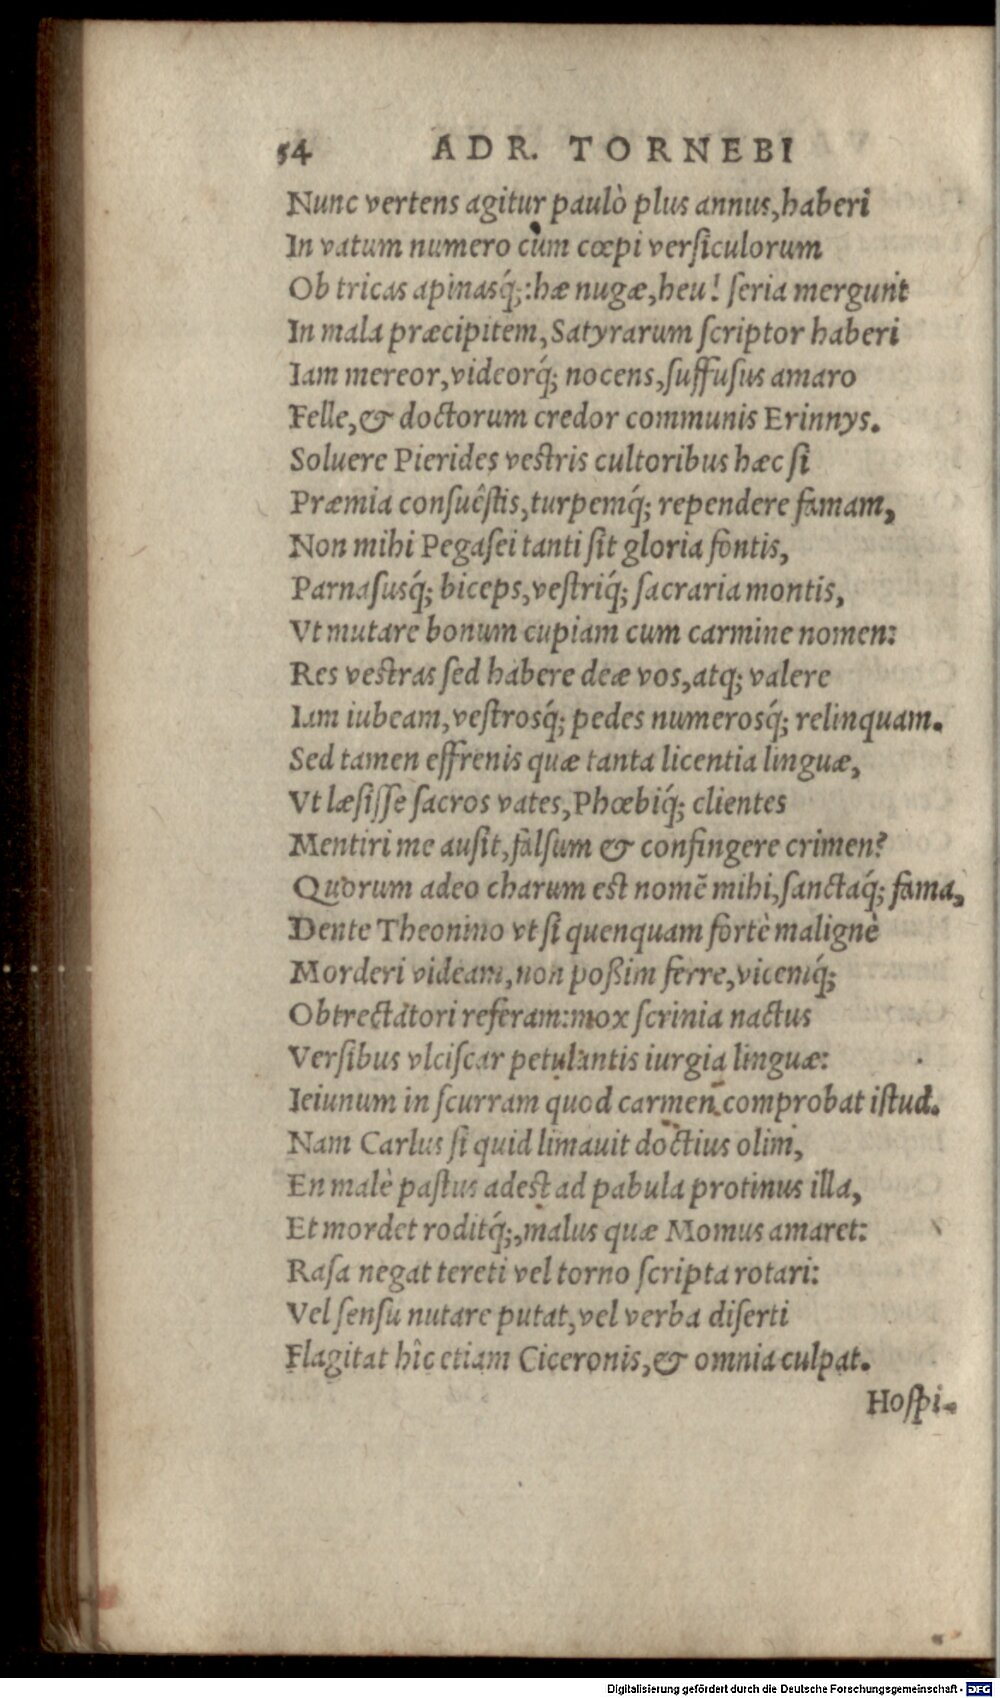 54 ADR. TORNEBI
Nunc vertens agitur paulò plus annus, haberi
In vatum numero cùm cœpi verſiculorum
Ob tricas apinasq́;: hæ nugæ, heu! ſeria mergunt
In mala præcipitem, Satyrarum ſcriptor haberi
Iam mereor, videorq́; nocens, ſuffuſus amaro
Felle, & doctorum credor communis Erinnys.
Soluere Pierides vestris cultoribus hæc ſi
Præmia conſuêſtis, turpemq́; rependere famam,
Non mihi Pegaſei tanti ſit gloria fontis,
Parnaſusq́; biceps, veſtriq́; ſacraria montis,
Vt mutare bonum cupiam cum carmine nomen:
Res vestras ſed habere deæ vos, atq; valere
Iam iubeam, veſtrosq́; pedes numerosq́; relinquam.
Sed tamen effrenis quæ tanta licentia linguæ,
Vt læſiſſe ſacros vates, Phœbiq́; clientes
Mentiri me auſit, falſum & confingere crimen?
Quorum adeo charum est nomẽ mihi, ſanctaq́; fama,
Dente Theonino vt ſi quenquam fortè malignè
Morderi videam, non poßim ferre, vicemq́;
Obtrectatori referam: mox ſcrinia nactus
Verſibus vlciſcar petulantis iurgia linguæ:
Ieiunum in ſcurram quod carmen comprobat iſtud.
Nam Carlus ſi quid limauit doctius olim,
En malè paſtus adest ad pabula protinus illa,
Et mordet roditq́;, malus quæ Momus amaret:
Raſa negat tereti vel torno ſcripta rotari:
Vel ſenſu nutare putat, vel verba diſerti
Flagitat hîc etiam Ciceronis, & omnia culpat.
Hoſpi-
Digitalisierung gefördert durch die Deutsche Forschungsgemeinschaft - DFG